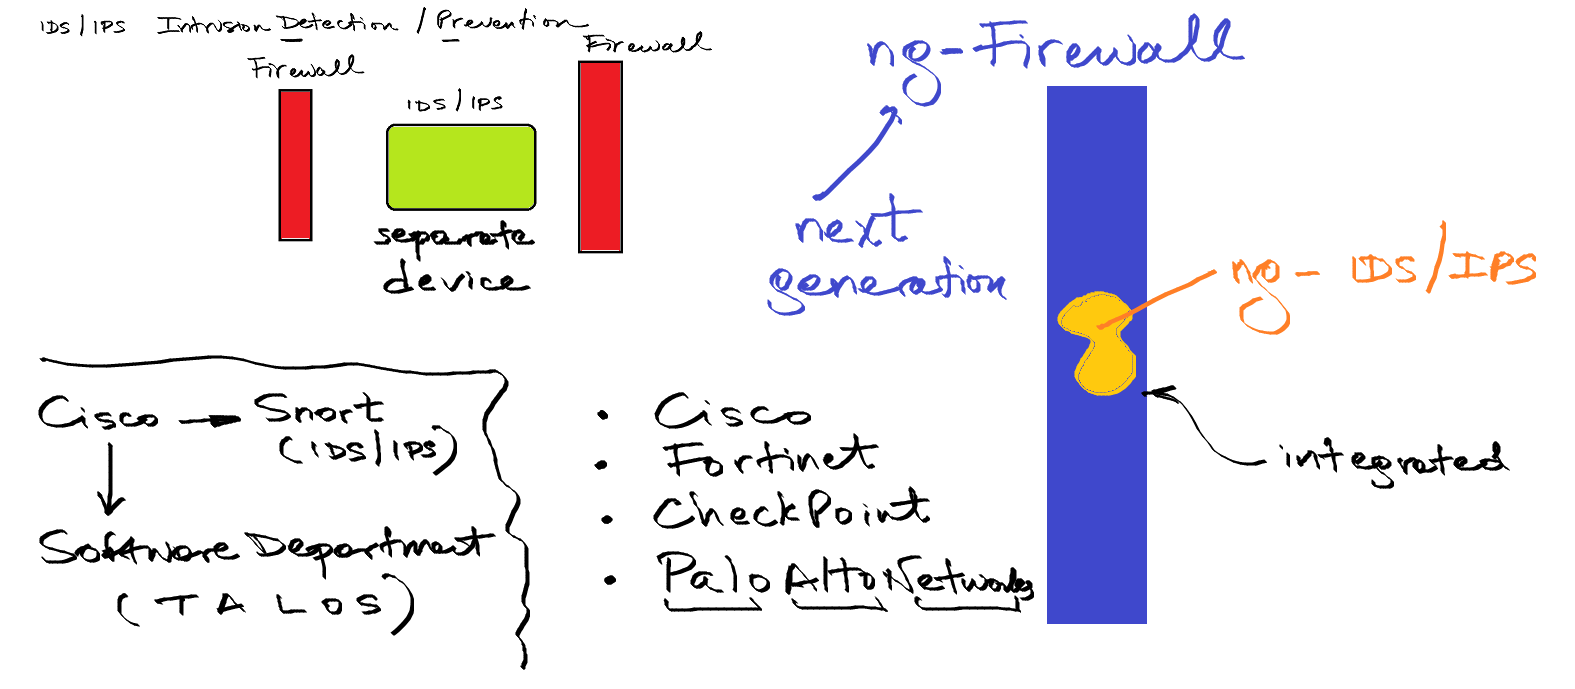 IDS/IPS Intrusion Detection / Prevention
Firewall
IDS/IPS
Firewall
separate
device
ng-Firewall
next
generation
ng- IDS/IPS
integrated
Cisco → Snort
(IDS/IPS)
Software Department
(TALOS)
• Cisco
• Fortinet
• CheckPoint
• Palo Alto Networks